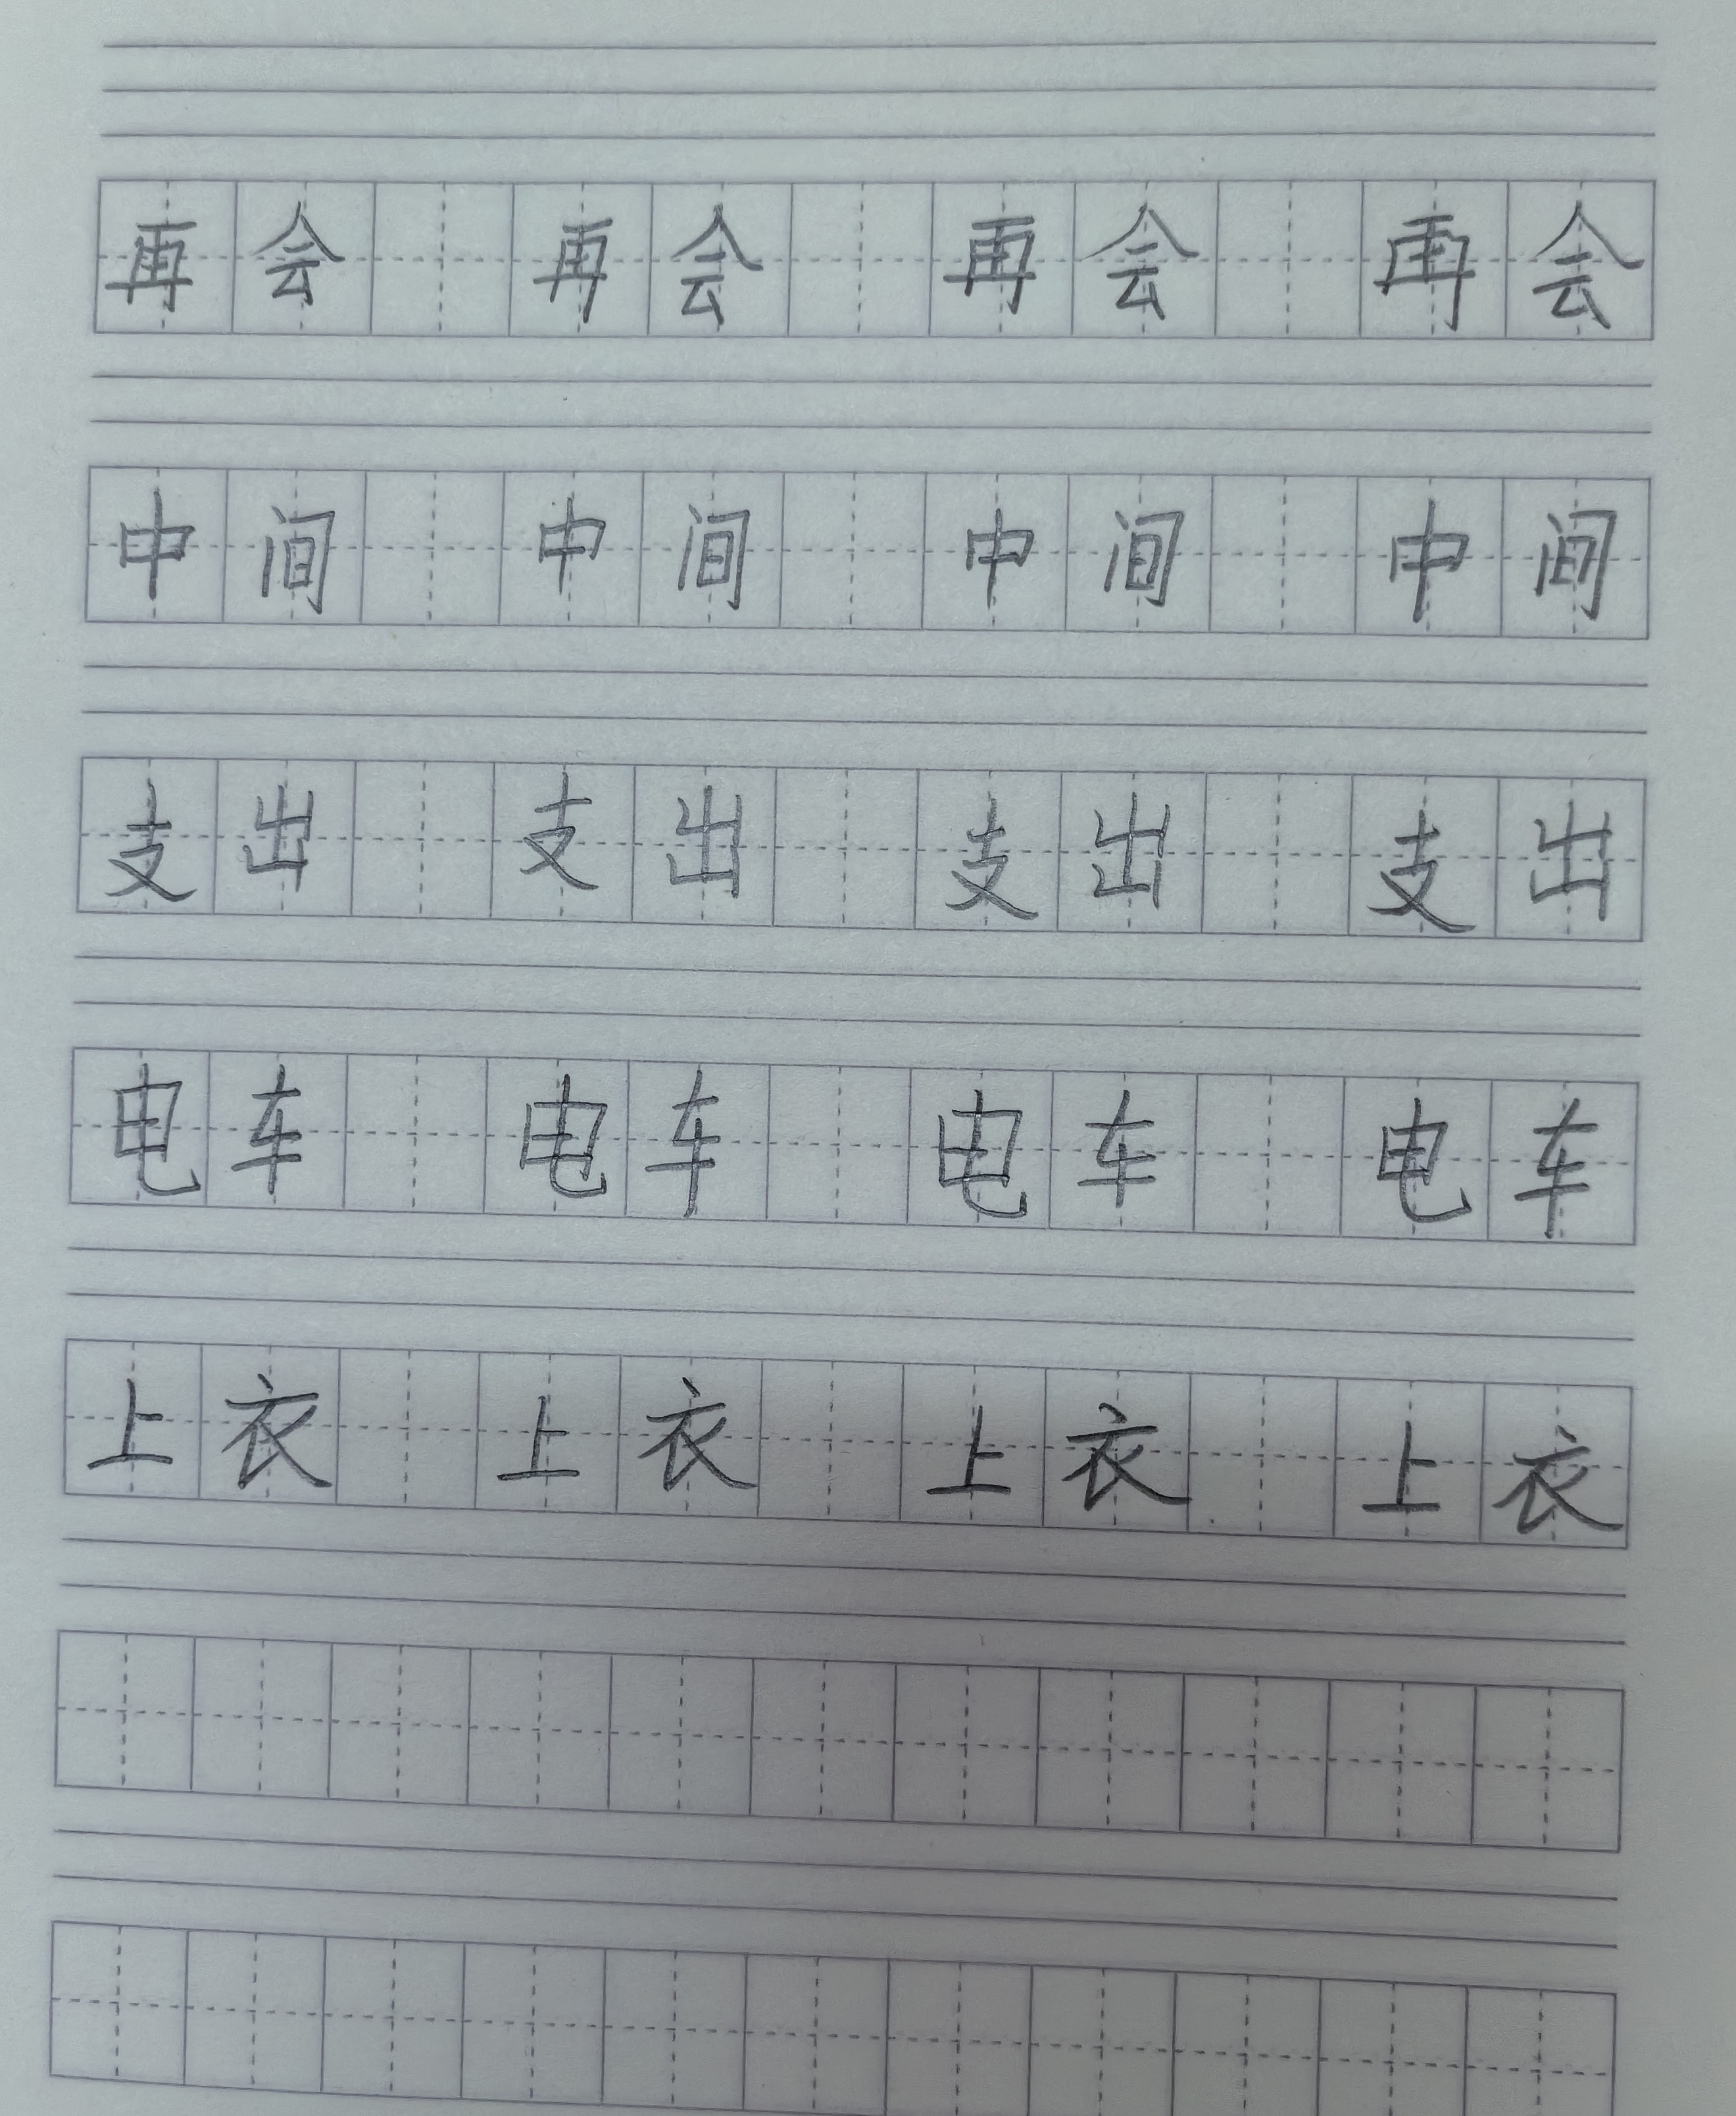 再会 再会 再会 再会
中间 中间 中间 中间
支出 支出 支出 支出
电车 电车 电车 电车
上衣 上衣 上衣 上衣